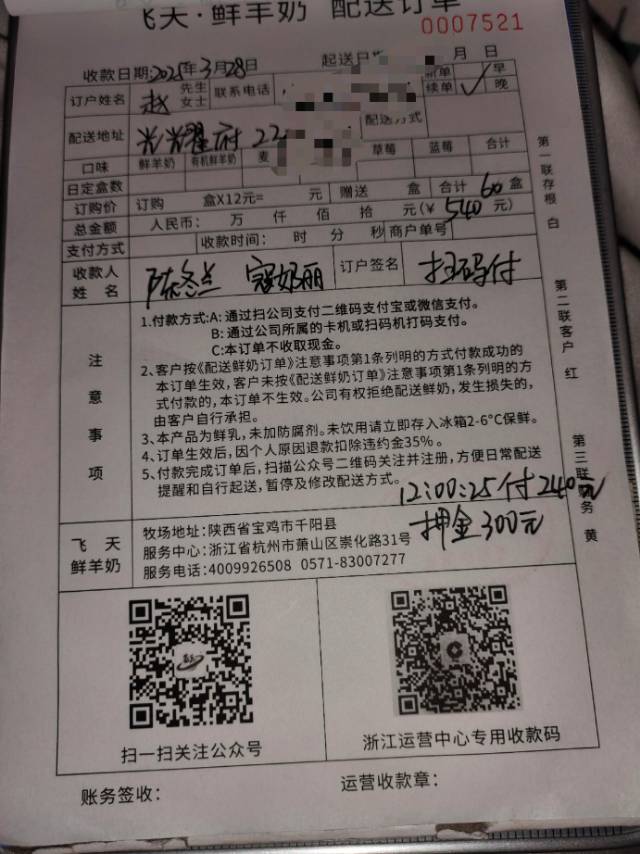 飞天·鲜羊奶 配送订单
0007521
收款日期:2025年3月28日 起送日 月 日
订户姓名 赵 先生 女士 联系电话 新单 续单 ✓ 早 晚
配送地址 光耀府 22 配送方式
口味 鲜羊奶 有机鲜羊奶 麦 草莓 蓝莓 合计
日定盒数
订购价 订购 盒X12元= 元 赠送 盒 合计 60 盒
总金额 人民币: 万 仟 佰 拾 元(¥ 540 元)
支付方式 收款时间: 时 分 秒 商户单号
收款人姓名 陈冬兰 订户签名 扫码付
注意事项
1.付款方式:A:通过扫公司支付二维码支付宝或微信支付。
B:通过公司所属的卡机或扫码机打码支付。
C:本订单不收取现金。
2、客户按《配送鲜奶订单》注意事项第1条列明的方式付款成功的
本订单生效,客户未按《配送鲜奶订单》注意事项第1条列明的方
式付款的,本订单不生效。公司有权拒绝配送鲜奶,发生损失的,
由客户自行承担。
3、本产品为鲜乳,未加防腐剂。未饮用请立即存入冰箱2-6°C保鲜。
4、订单生效后,因个人原因退款扣除违约金35%。
5、付款完成订单后,扫描公众号二维码关注并注册,方便日常配送
提醒和自行起送,暂停及修改配送方式。
12:00:25付240元
押金300元
飞天
鲜羊奶
牧场地址:陕西省宝鸡市千阳县
服务中心:浙江省杭州市萧山区崇化路31号
服务电话:4009926508 0571-83007277
扫一扫关注公众号
浙江运营中心专用收款码
账务签收: 运营收款章:
第一联存根 白
第二联客户 红
第三联 务 黄